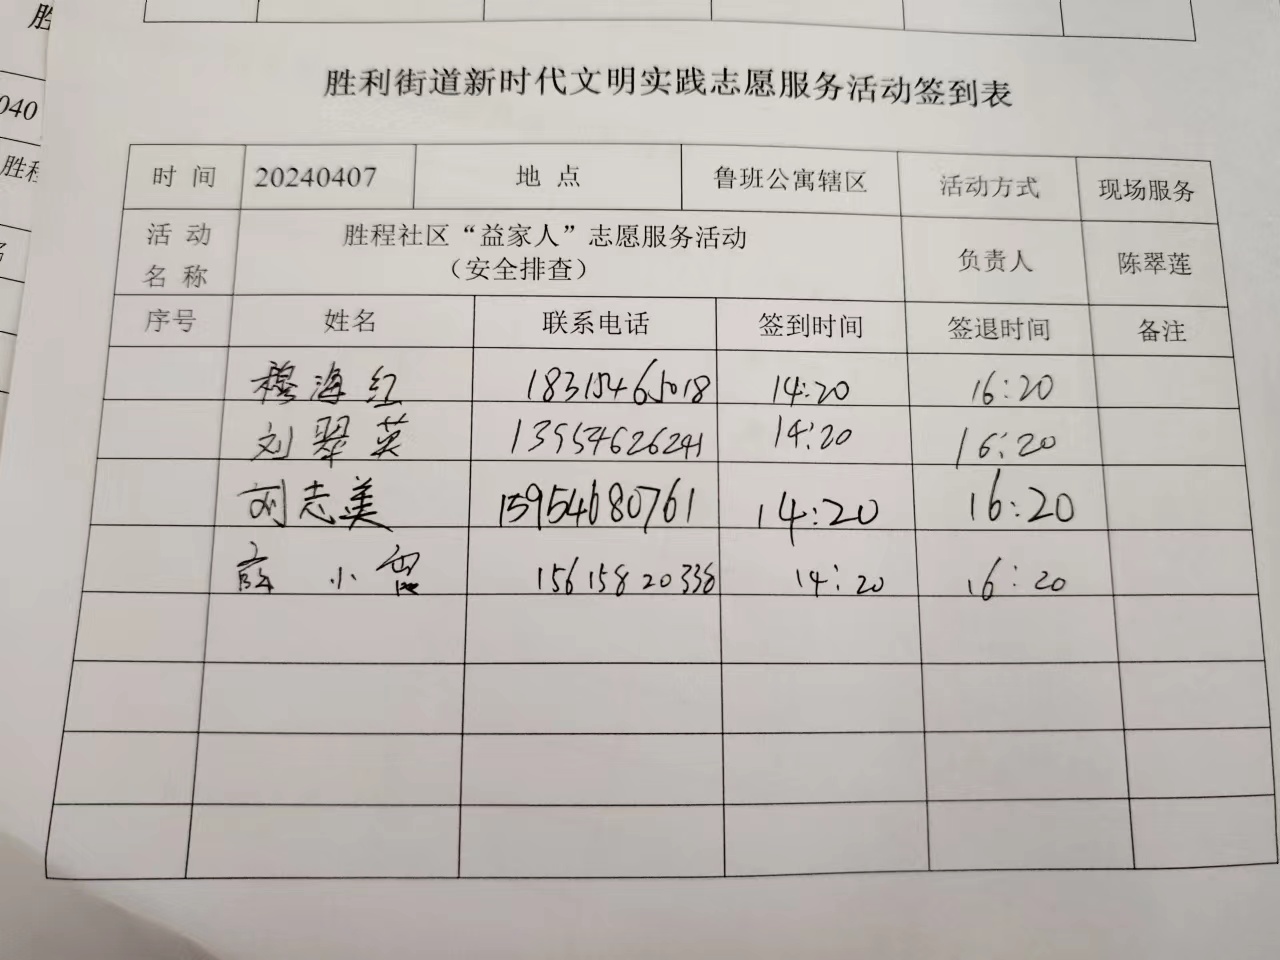 胜
040
胜程
胜利街道新时代文明实践志愿服务活动签到表
时 间 20240407 地 点 鲁班公寓辖区 活动方式 现场服务
活 动 名 称 胜程社区“益家人”志愿服务活动 负责人 陈翠莲
(安全排查)
序号 姓名 联系电话 签到时间 签退时间 备注
穆海红 18315465018 14:20 16:20
刘翠英 13954626241 14:20 16:20
刘志美 15954680761 14:20 16:20
薛小 15615820338 14:20 16:20